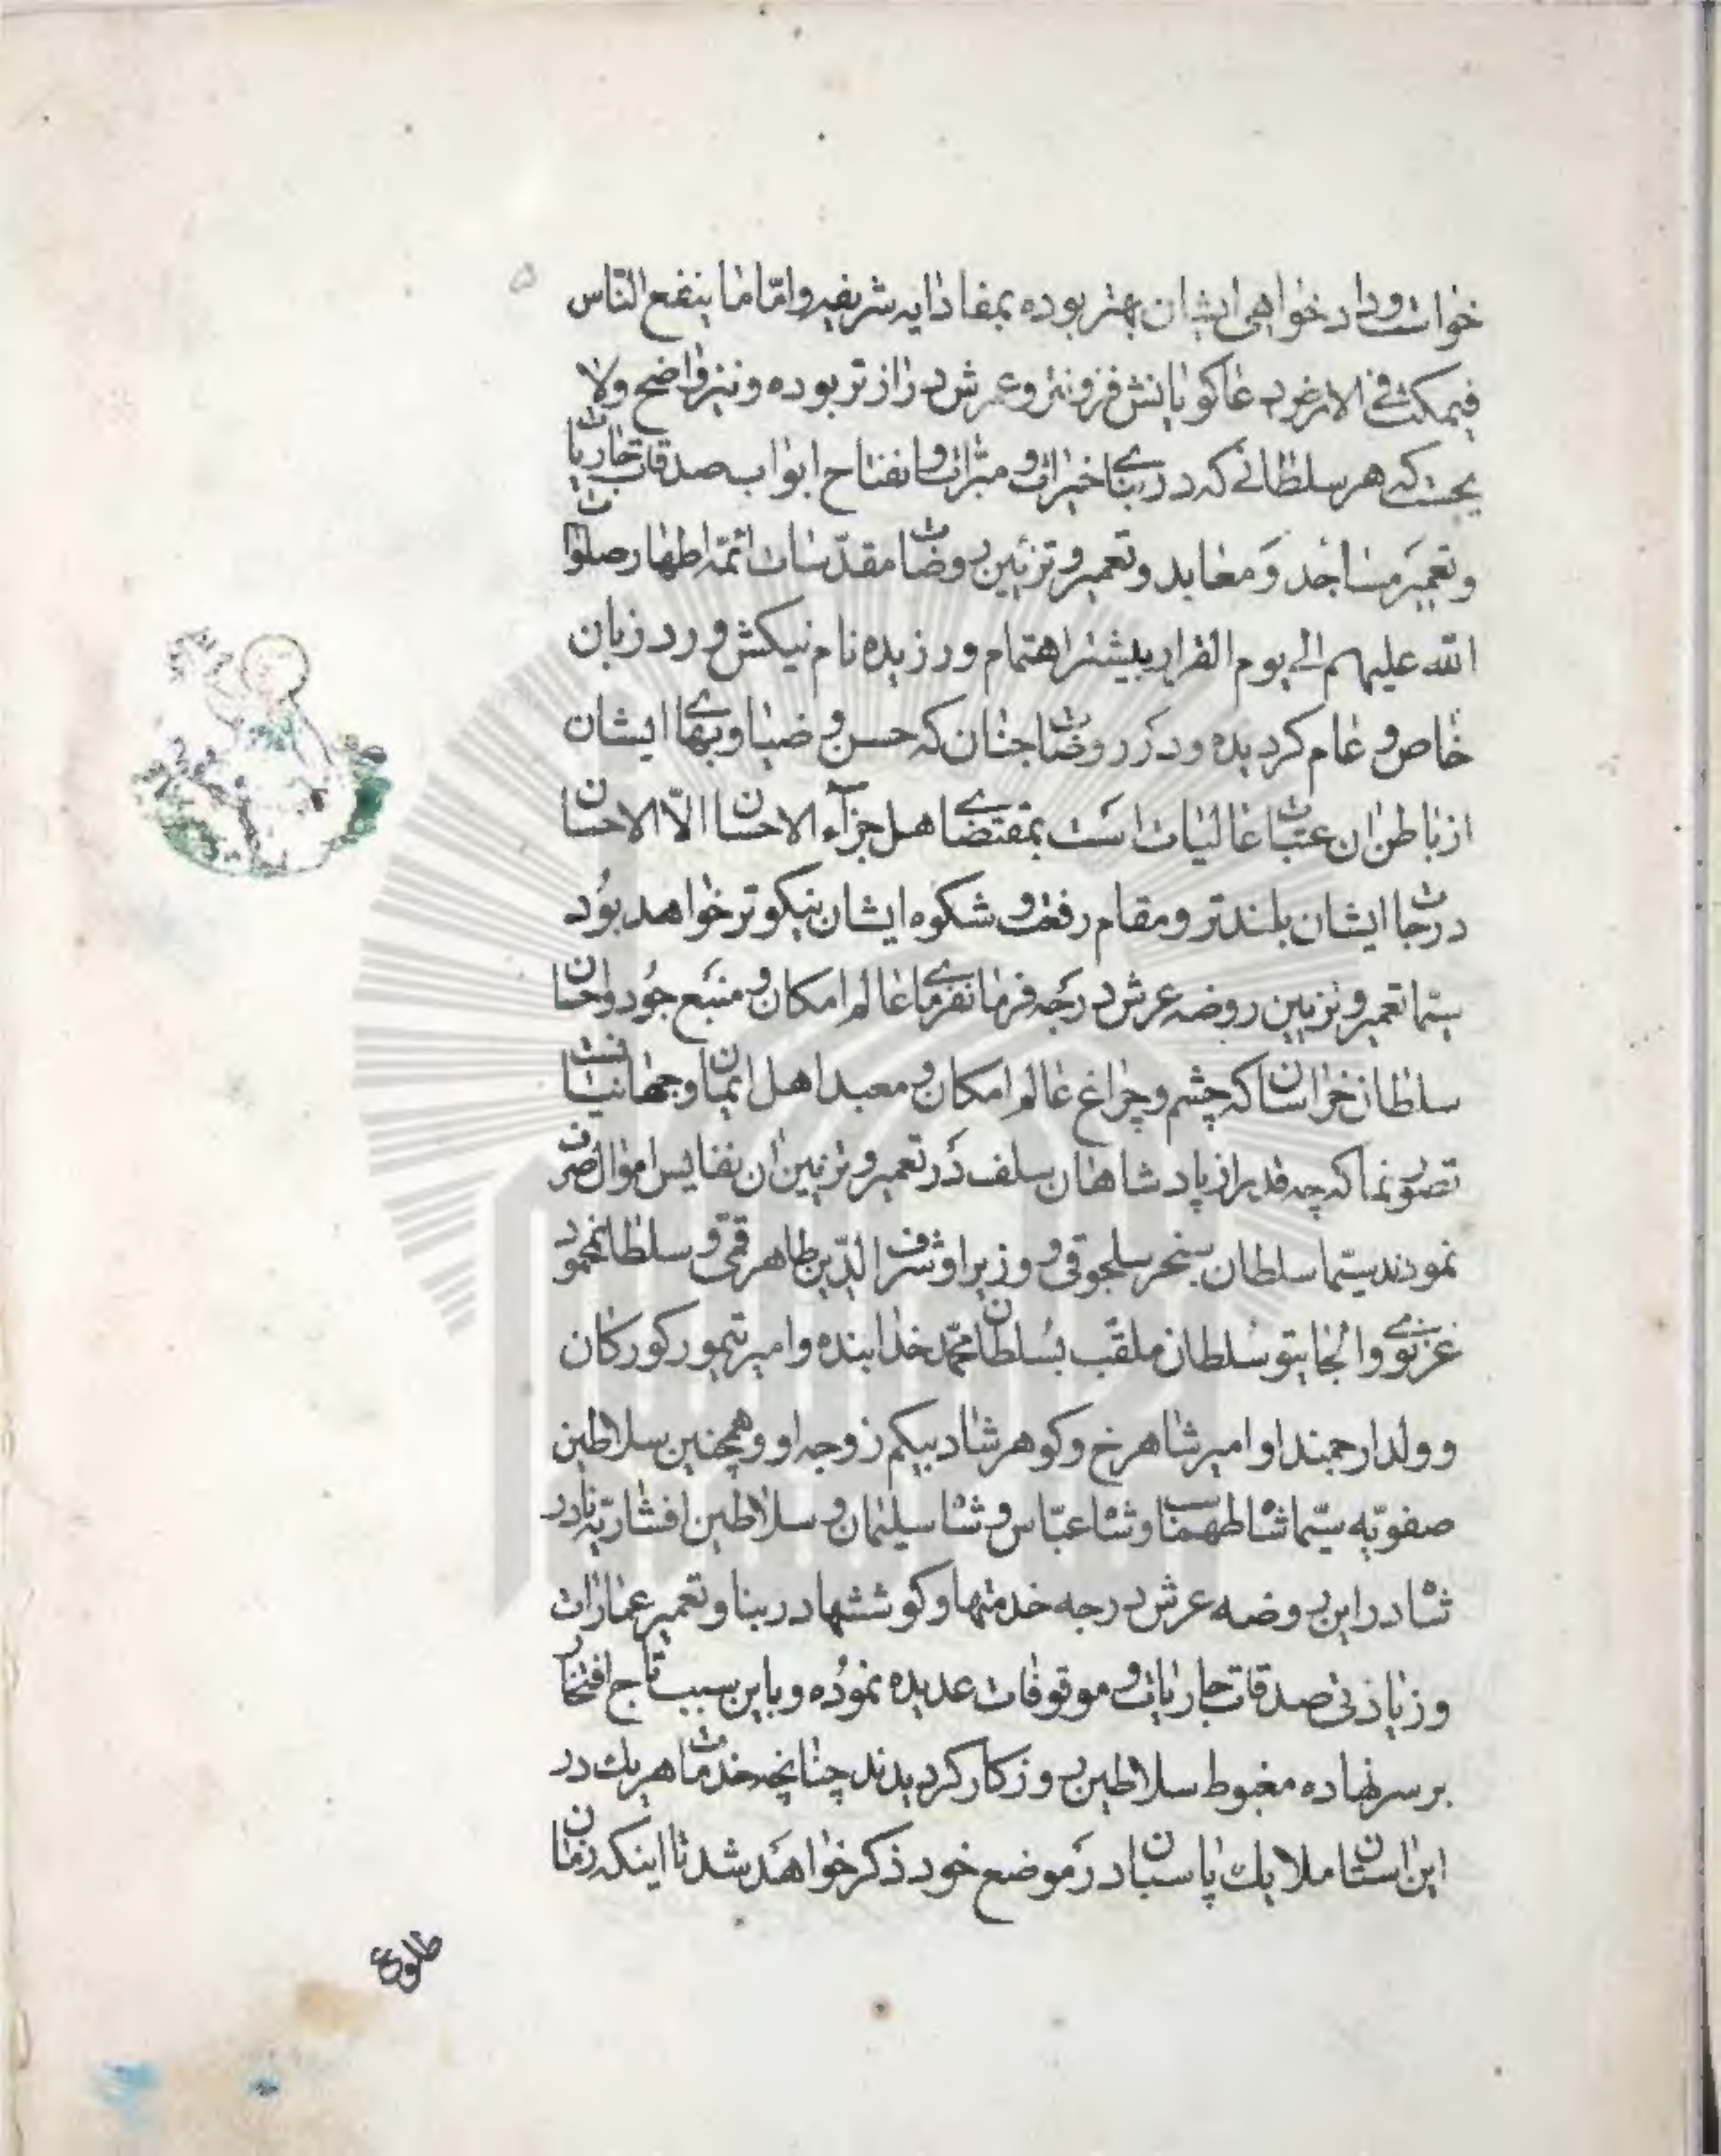 خواست و داد خواهی ایشان بهتر بوده بمفاد ایه شریفه و امّا ما ینفع النّاس
فیمکث فی الارض دعا کویانش فزونتر و عرش دراز تر بوده و نیز واضح و لا
یحست که هر سلطانی که در بنای خیرات و مبرّات و انفتاح ابواب صدقات جاریات
و تعمیر مساجد و معابد و تعمیر و تزئین روضات مقدّسات ائمّه اطهار صلوات
الله علیهم الی یوم القرار بیشتر اهتمام ورزیده نام نیکش ورد زبان
خاص و عام کردیده و در روضات جنان که حسن و ضیا و بهای ایشان
از باطن ان عتبات عالیات است بمقتضای هل جزآء الاحسان الّا الاحسان
درجات ایشان بلندتر و مقام رفعت و شکوه ایشان نیکوتر خواهد بود
سیّما تعمیر و تزیین روضه عرش درجه فرمانفرمای عالم امکان و منبع جود و احسان
سلطان خراسان که چشم و چراغ عالم امکان و معبد اهل ایمان و جهانیانست
تصوّر نما که چه قدر از پادشاهان سلف در تعمیر و تزیین ان نفایس اموال صرف
نمودند سیّما سلطان سنجر سلجوقی و وزیر او شرف الدّین طاهر قمی و سلطان محمود
غزنوی و الجایتو سلطان ملقّب بسلطان محمّد خدابنده و امیر تیمور کورکان
و ولد ارجمند او امیر شاهرخ و کوهرشاد بیکم زوجه او و همچنین سلاطین
صفویّه سیّما شاه طهماسب و شاه عبّاس و شاه سلیمان و سلاطین افشاریّه نادر
شاه در این روضه عرش درجه خدمتها و کوششها در بنا و تعمیر عمارات
و زیادتی صدقات جاریات و موقوفات عدیده نموده و باین سبب تاج افتخار
بر سر نهاده مغبوط سلاطین روزکار کردیدند چنانچه خدمات هریك در
این استان ملایك پاسبان در موضع خود ذکر خواهد شد تا اینکه زمان
طلوع